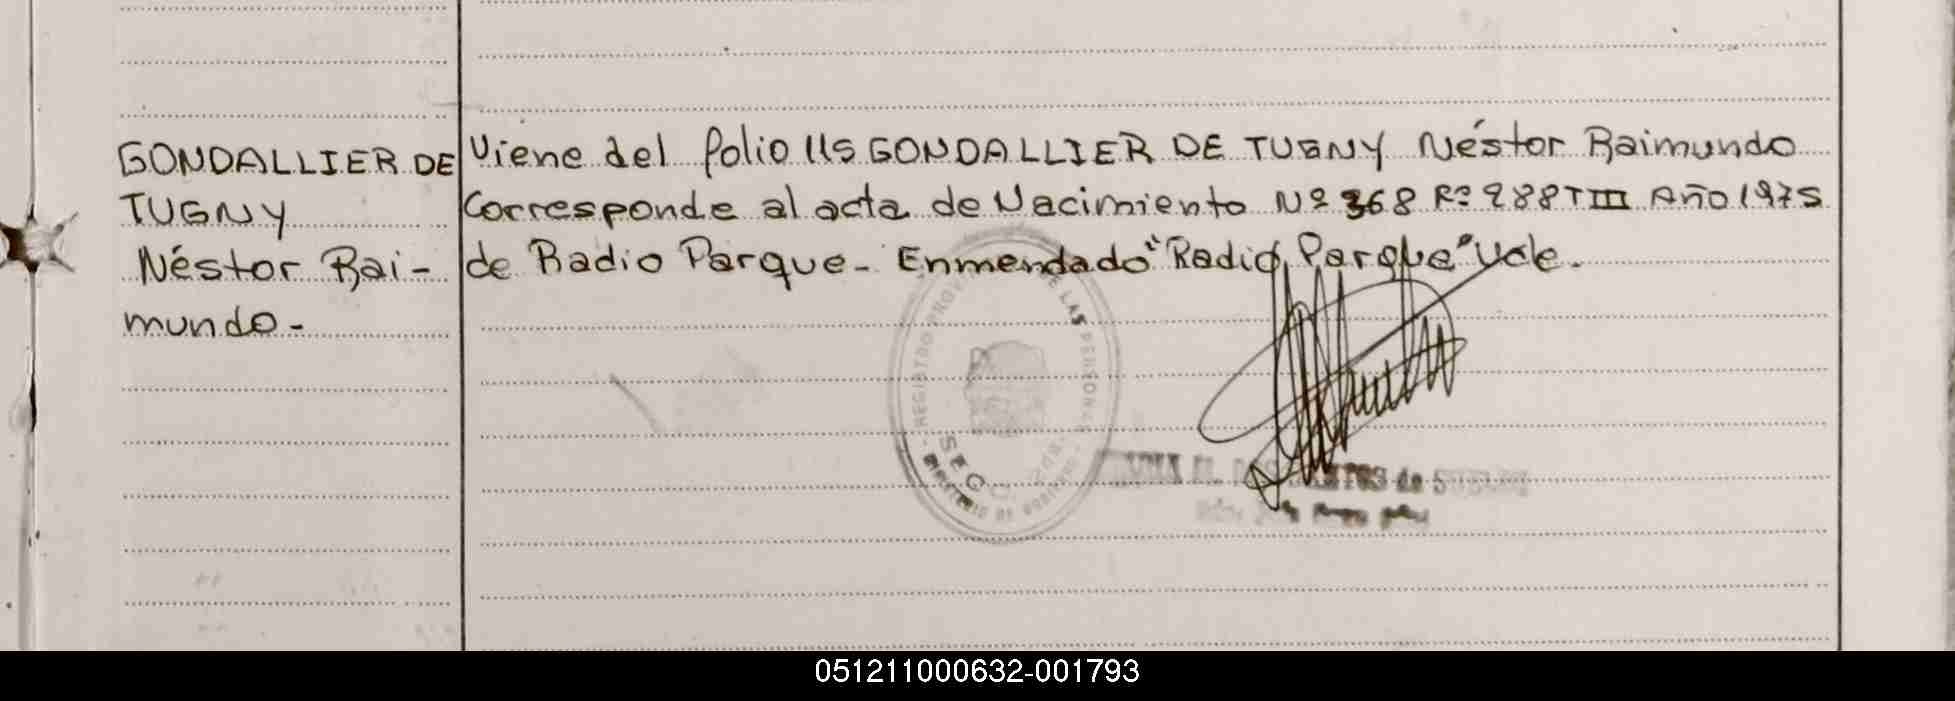 GONDALLIER DE
TUGNY
Néstor Rai-
mundo-
Viene del folio 115 GONDALLIER DE TUGNY Néstor Raimundo
Corresponde al acta de Nacimiento Nº 368 Fº 288 T III Año 1975
de Radio Parque- Enmendado "Radio Parque" Vale.
REGISTRO DE LAS PERSONAS
051211000632-001793